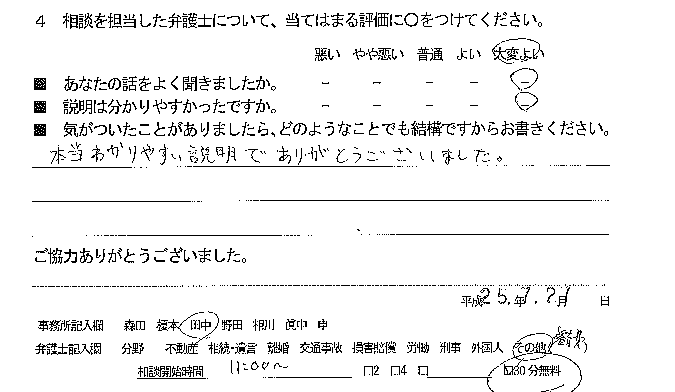 4 相談を担当した弁護士について、当てはまる評価に〇をつけてください。
悪い やや悪い 普通 よい 大変よい
■ あなたの話をよく聞きましたか。 － － － － －
■ 説明は分かりやすかったですか。 － － － － －
■ 気がついたことがありましたら、どのようなことでも結構ですからお書きください。
本当わかりやすい説明でありがとうございました。
ご協力ありがとうございました。
平成25.年7.21月 日
事務所記入欄 森田 榎本 田中 野田 相川 眞中 申
弁護士記入欄 分野 不動産 相続・遺言 離婚 交通事故 損害賠償 労働 刑事 外国人 その他(
相談開始時間 11:00～ □2 □4 □ 30分無料